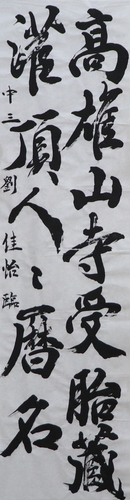 高雄山寺受胎藏
灌頂人〻曆名
中三 劉佳怡 臨